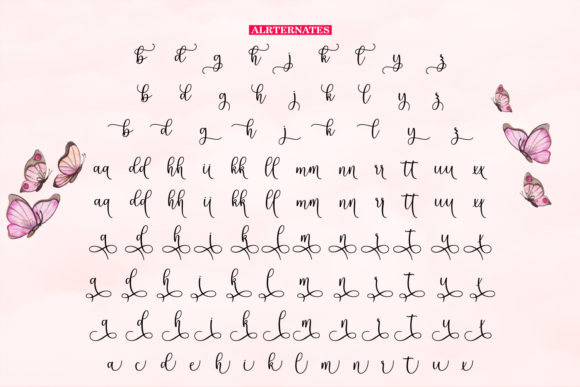 ALRTERNATES
b d g h j k l y z
b d g h j k l y z
b d g h j k l y z
aa dd hh ii kk ll mm nn rr tt uu xx
aa dd hh ii kk ll mm nn rr tt uu xx
a d h i k l m n r t u x
a d h i k l m n r t u x
a d h i k l m n r t u x
a c d e h i k l m n r t u x